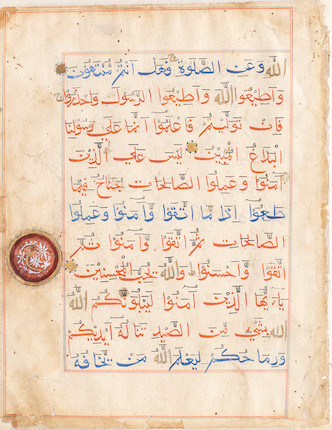 الله وَعَنِ الصَّلٰوةِ فَهَلْ اَنْتُمْ مُنْتَهُونَ
وَاَطِيعُوا الله وَاَطِيعُوا الرَّسُولَ وَاحْذَرُوا
فَاِنْ تَوَلَّيْتُمْ فَاعْلَمُوا اَنَّمَا عَلَى رَسُولِنَا
الْبَلَاغُ الْمُبِينُ لَيْسَ عَلَى الَّذِينَ
آمَنُوا وَعَمِلُوا الصَّالِحَاتِ جُنَاحٌ فِيمَا
طَعِمُوا اِذَا مَا اتَّقَوْا وَآمَنُوا وَعَمِلُوا
الصَّالِحَاتِ ثُمَّ اتَّقَوْا وَآمَنُوا ثُمَّ
اتَّقَوْا وَاَحْسَنُوا وَالله يُحِبُّ الْمُحْسِنِينَ
يَا اَيُّهَا الَّذِينَ آمَنُوا لَيَبْلُوَنَّكُمُ الله
بِشَيْءٍ مِنَ الصَّيْدِ تَنَالُهُ اَيْدِيكُمْ
وَرِمَاحُكُمْ لِيَعْلَمَ الله مَنْ يَخَافُهُ